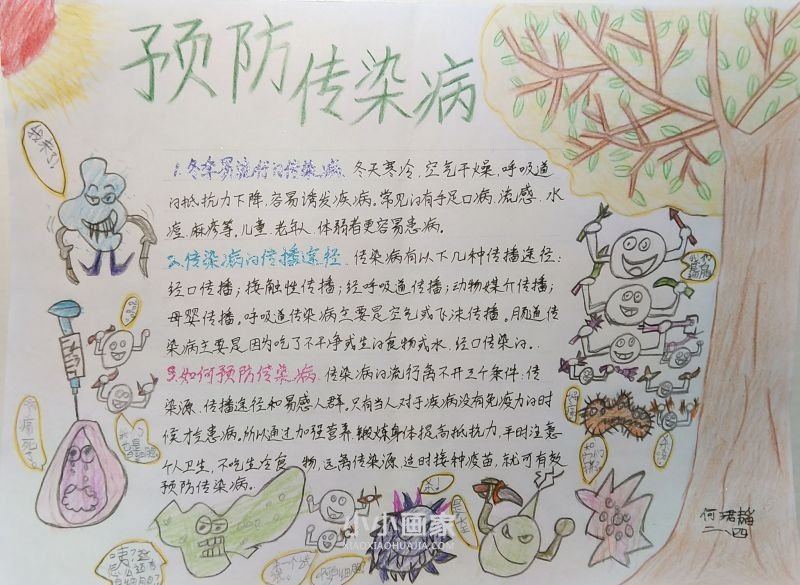 预防传染病
我来了
1.冬季易流行的传染病 冬天寒冷,空气干燥,呼吸道
的抵抗力下降,容易诱发疾病。常见的有手足口病、流感、水
痘、麻疹等,儿童、老年人、体弱者更容易患病。
2.传染病的传播途径 传染病有以下几种传播途径:
经口传播;接触性传播;经呼吸道传播;动物媒介传播;
母婴传播。呼吸道传染病主要是空气或飞沫传播。肠道传
染病主要是因为吃了不干净或生的食物或水,经口传染的。
3.如何预防传染病 传染病的流行离不开三个条件:传
染源、传播途径和易感人群。只有当人对于疾病没有免疫力的时
候才会患病,所以通过加强营养,锻炼身体提高抵抗力,平时注意
个人卫生,不吃生冷食物,远离传染源,适时接种疫苗,就可有效
预防传染病。
小小画家
XIAOXIAOHUAJIA.COM